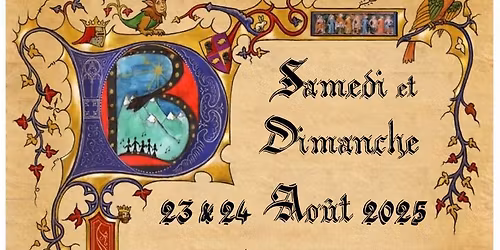 Samedi et
Dimanche
23 & 24 Août 2025